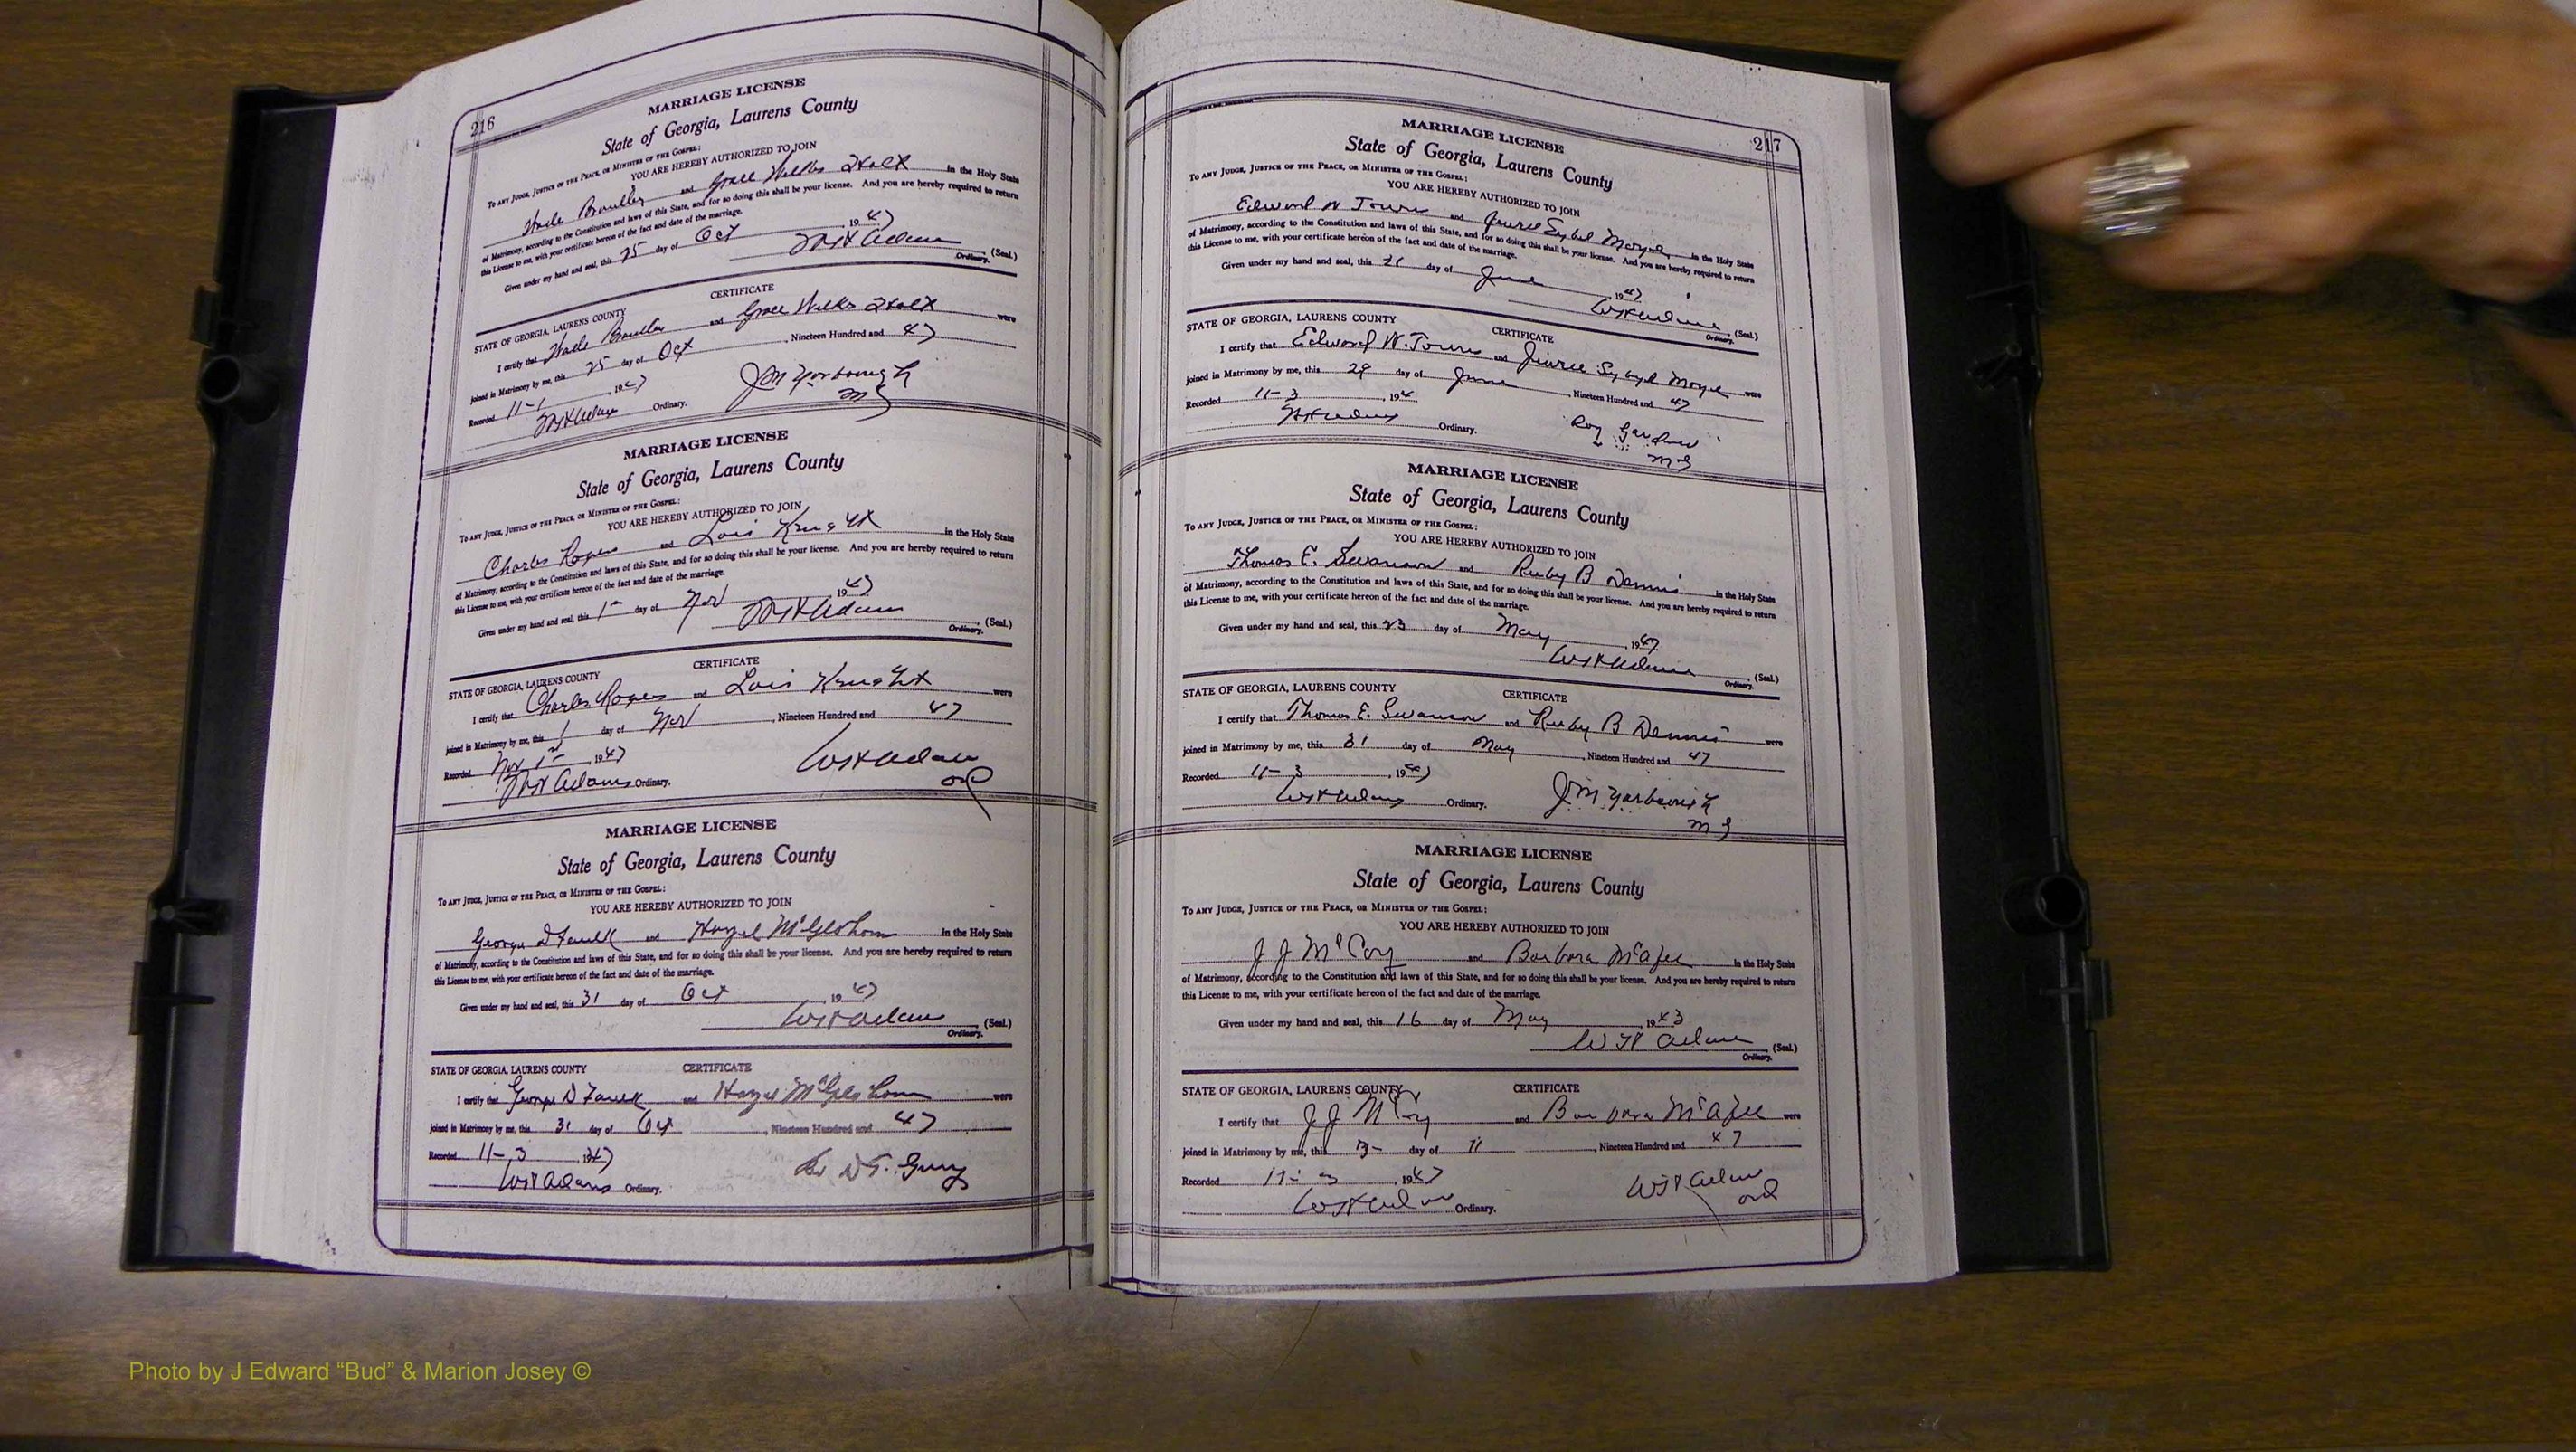 216
MARRIAGE LICENSE
State of Georgia, Laurens County
TO ANY JUDGE, JUSTICE OF THE PEACE, OR MINISTER OF THE GOSPEL:
YOU ARE HEREBY AUTHORIZED TO JOIN
and Grace Wilkes in the Holy State
of Matrimony, according to the Constitution and laws of this State, and for so doing this shall be your license. And you are hereby required to return
this License to me, with your certificate hereon of the fact and date of the marriage.
Given under my hand and seal, this 25 day of Oct 1947
WH Adams (Seal.)
Ordinary.
CERTIFICATE
STATE OF GEORGIA, LAURENS COUNTY
I certify that and Grace Wilkes were
joined in Matrimony by me, this 25 day of Oct, Nineteen Hundred and 47
Recorded 11-1, 1947 JM Yarbrough
WH Adams Ordinary. MG
MARRIAGE LICENSE
State of Georgia, Laurens County
TO ANY JUDGE, JUSTICE OF THE PEACE, OR MINISTER OF THE GOSPEL:
YOU ARE HEREBY AUTHORIZED TO JOIN
Charles Rogers and Lois Knight in the Holy State
of Matrimony, according to the Constitution and laws of this State, and for so doing this shall be your license. And you are hereby required to return
this License to me, with your certificate hereon of the fact and date of the marriage.
Given under my hand and seal, this 1 day of Nov 1947
WH Adams (Seal.)
Ordinary.
CERTIFICATE
STATE OF GEORGIA, LAURENS COUNTY
I certify that Charles Rogers and Lois Knight were
joined in Matrimony by me, this 1 day of Nov, Nineteen Hundred and 47
Recorded Nov 1st, 1947 WH Adams
WH Adams Ordinary. ord
MARRIAGE LICENSE
State of Georgia, Laurens County
TO ANY JUDGE, JUSTICE OF THE PEACE, OR MINISTER OF THE GOSPEL:
YOU ARE HEREBY AUTHORIZED TO JOIN
George D Faulk and Hazel in the Holy State
of Matrimony, according to the Constitution and laws of this State, and for so doing this shall be your license. And you are hereby required to return
this License to me, with your certificate hereon of the fact and date of the marriage.
Given under my hand and seal, this 31 day of Oct, 1947
WH Adams (Seal.)
Ordinary.
STATE OF GEORGIA, LAURENS COUNTY CERTIFICATE
I certify that George D Faulk and Hazel were
joined in Matrimony by me, this 31 day of Oct, Nineteen Hundred and 47
Recorded 11-3, 1947
WH Adams Ordinary.
217
MARRIAGE LICENSE
State of Georgia, Laurens County
TO ANY JUDGE, JUSTICE OF THE PEACE, OR MINISTER OF THE GOSPEL:
YOU ARE HEREBY AUTHORIZED TO JOIN
Edward W Towns and Sybil in the Holy State
of Matrimony, according to the Constitution and laws of this State, and for so doing this shall be your license. And you are hereby required to return
this License to me, with your certificate hereon of the fact and date of the marriage.
Given under my hand and seal, this 21 day of June, 1947
WH Adams (Seal.)
Ordinary.
STATE OF GEORGIA, LAURENS COUNTY CERTIFICATE
I certify that Edward W. Towns and were
joined in Matrimony by me, this 29 day of June, Nineteen Hundred and 47
Recorded 11-3, 194 Roy Gardner
WH Adams Ordinary. MG
MARRIAGE LICENSE
State of Georgia, Laurens County
TO ANY JUDGE, JUSTICE OF THE PEACE, OR MINISTER OF THE GOSPEL:
YOU ARE HEREBY AUTHORIZED TO JOIN
Thomas E. Swanson and Ruby B Dennis in the Holy State
of Matrimony, according to the Constitution and laws of this State, and for so doing this shall be your license. And you are hereby required to return
this License to me, with your certificate hereon of the fact and date of the marriage.
Given under my hand and seal, this 23 day of May, 1947
WH Adams (Seal.)
Ordinary.
STATE OF GEORGIA, LAURENS COUNTY CERTIFICATE
I certify that Thomas E. Swanson and Ruby B Dennis were
joined in Matrimony by me, this 31 day of May, Nineteen Hundred and 47
Recorded 11-3, 1947 JM Yarbrough
WH Adams Ordinary. MG
MARRIAGE LICENSE
State of Georgia, Laurens County
TO ANY JUDGE, JUSTICE OF THE PEACE, OR MINISTER OF THE GOSPEL:
YOU ARE HEREBY AUTHORIZED TO JOIN
J J McCoy and Barbara McAfee in the Holy State
of Matrimony, according to the Constitution and laws of this State, and for so doing this shall be your license. And you are hereby required to return
this License to me, with your certificate hereon of the fact and date of the marriage.
Given under my hand and seal, this 16 day of May, 1943
WH Adams (Seal.)
Ordinary.
STATE OF GEORGIA, LAURENS COUNTY CERTIFICATE
I certify that J J McCoy and Barbara McAfee were
joined in Matrimony by me, this day of 11, Nineteen Hundred and 47
Recorded 11-3, 1947 WH Adams
WH Adams Ordinary. ord
Photo by J Edward “Bud” & Marion Josey ©